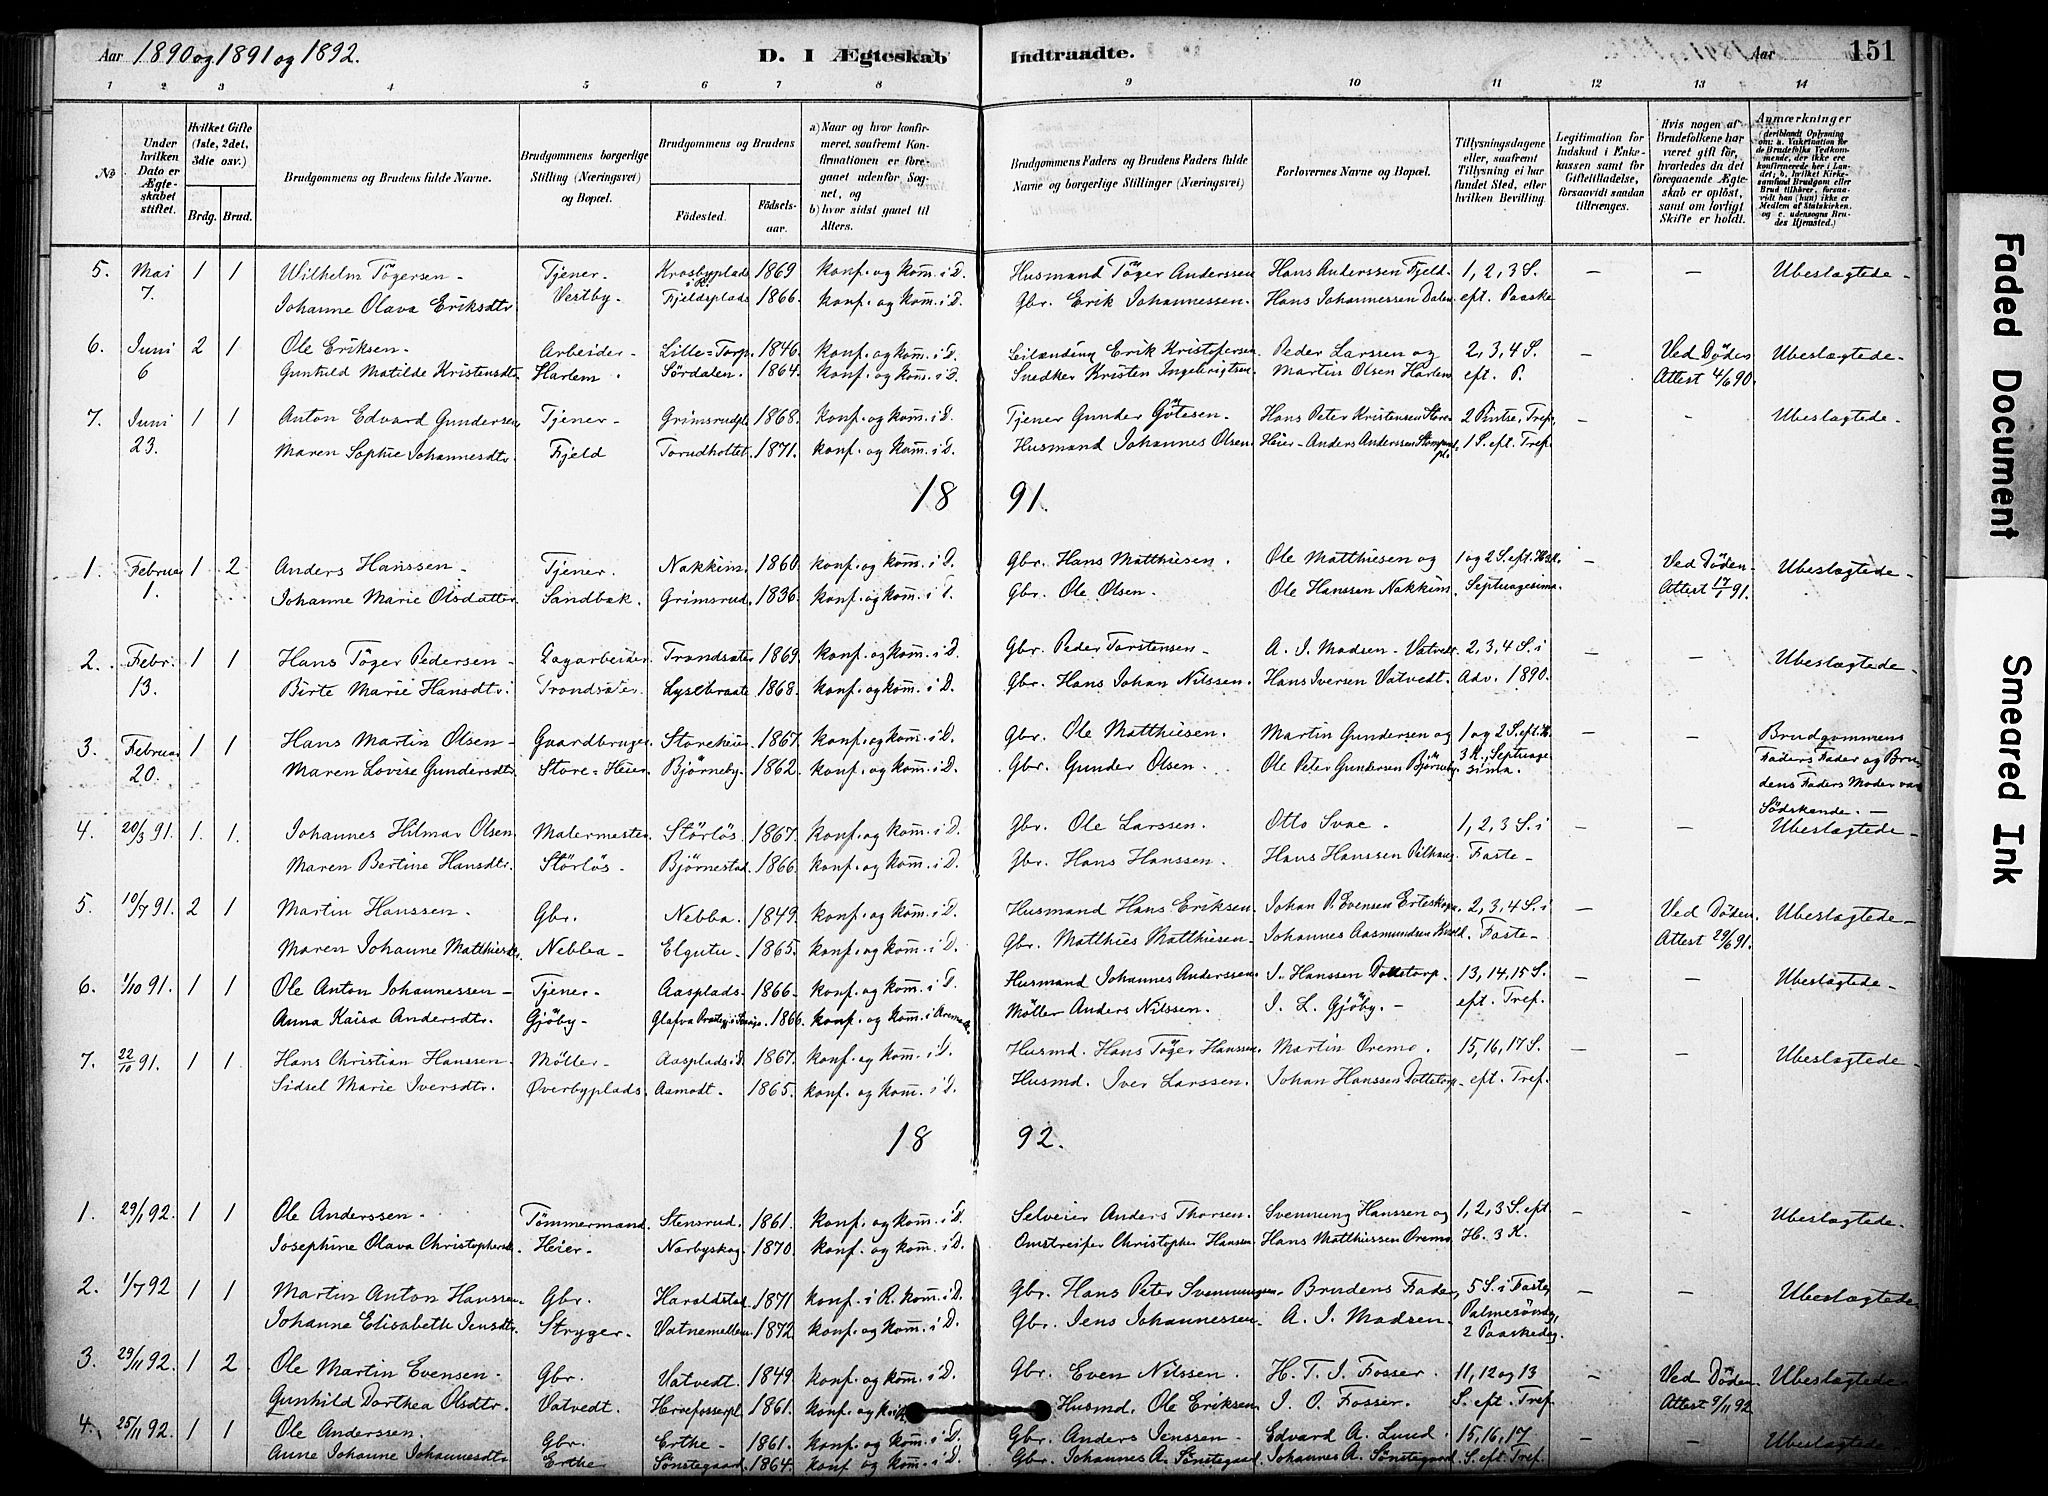 Aar 1890 og 1891 og 1892.
D. I Ægteskab Indtraadte.
Aar 151
1 2 3 4 5 6 7 8 9 10 11 12 13 14
No
Under hvilken Dato er Ægteskabet stiftet.
Hvilket Gifte (1ste, 2det, 3die osv.)
Brdg. Brud.
Brudgommens og Brudens fulde Navne.
Brudgommens borgerlige Stilling (Næringsvei) og Bopæl.
Brudgommens og Brudens
Födested. Födselsaar.
a) Naar og hvor konfirmeret, saafremt Konfirmationen er foregaaet udenfor Sognet, og
b) hvor sidst gaaet til Alters.
Brudgommens Faders og Brudens Faders fulde Navne og borgerlige Stillinger (Næringsvei)
Forlovernes Navne og Bopæl.
Tillysningsdagene eller, saafremt Tillysning ei har fundet Sted, efter hvilken Bevilling.
Legitimation for Indskud i Enkekassen samt for Giftetilladelse, forsaavidt saadan tiltrænges.
Hvis nogen af Brudefolkene har været gift før, hvortedes da det foregaaende Ægteskab er oplöst, samt om lovligt Skifte er holdt.
Anmærkninger (deriblandt Oplysning om: a. Vakcination for de Brudefolks Vedkommende, der ikke ere konfirmerede her i Landet; b. hvilket Kirkesamfund Brudgom eller Brud tilhörer, forsaavidt han (hun) ikke er Medlem af Statskirken, og c. udensogns Brudes Hjemsted.)
5. Mai 1 1 Wilhelm Tögersen - Tjener - Krosbyplads i R. 1869 konf. og kom. i D. Husmand Töger Anderssen Hans Anderssen Fjeld. 1, 2, 3 S. - - Ubeslægtede -
7. Johanne Olava Eriksdtr Vestby - Fjeldsplads 1866. konf. og kom. i D. Gbr. Erik Johannessen. Hans Johannessen Dalen eft. Paaske
6. Juni 2 1 Ole Eriksen - Arbeider - Lille-Torp. 1846. konf. og kom. i D. Leilænding Erik Kristofersen Peder Larssen og 2, 3, 4 S. - Ved Döden Ubeslægtede -
6 Gunhild Matilde Kristensdtr Harlem. Sördalen. 1864. konf. og kom. i D. Snedker Kristen Ingebrigtsen Martin Olsen Harlem eft. P. Attest 4/6 90.
7. Juni 1 1 Anton Edvard Gundersen Tjener - Grimsrudpl. 1868. konf. og kom. i D. Tjener Gunder Götesen. Hans Peter Kristensen Store 2 Pintse, Tref, - - Ubeslægtede -
23. Maren Sophie Johannesdtr. Fjeld Torudholtet 1871. konf. og kom. i D. Husmand Johannes Olsen. Heier - Anders Anderssen 1 S. eft. Tref.
18 91.
1. Februar 1 2 Anders Hanssen - Tjener. Nakkim. 1860. konf. og kom. i D. Gbr. Hans Matthiesen. Ole Matthiesen og 1 og 2 S. eft. H3K. - Ved Döden - Ubeslægtede -
1. Johanne Marie Olsdatter Sandbæk. Grimsrud. 1836. konf. og kom. i D. Gbr. Ole Olsen. Ole Hanssen Nakkim. Septuagesima. Attest 17/1 91.
2. Febr. 1 1 Hans Töger Pedersen - Sagarbeider Trondsater 1869. konf. og kom. i D. Gbr. Peder Torstensen - A. J. Madsen - Vatvedt. 2, 3, 4 S. i - - Ubeslægtede -
13. Birte Marie Hansdtr. Trondsater. Lyselbraate 1868. konf. og kom. i D. Gbr. Hans Johan Nilssen. Hans Iversen Vatvedt. Adv. 1890.
3. Februar 1 1 Hans Martin Olsen - Gaardbruger. Storeheier. 1867. konf. og kom. i D. Gbr. Ole Matthiesen. Martin Gundersen og 1 og 2 S. eft. H. - - Brudgommens
20. Maren Lovise Gundersdtr. Store-Heier Björneby. 1862. konf. og kom. i D. Gbr. Gunder Olsen. Ole Peter Gundersen Björneby. 3 K., Septuagesima. Faders Fader og Brudens Faders Moder var Södskende. -
4. 20/3 91. 1. 1. Johannes Hilmar Olsen Malermester Störlös. 1867. konf. og kom. i D. Gbr. Ole Larssen. Otto Svae - 1, 2, 3 S. i - - Ubeslægtede -
Maren Bertine Hansdtr. Störlös. Björnestad. 1866. konf. og kom. i D. Gbr. Hans Hanssen. Hans Hanssen Faste -
5. 10/7 91. 2 1 Martin Hanssen. Gbr. Nebba. 1849. konf. og kom. i D. Husmand Hans Eriksen. Johan P. Evensen 2, 3, 4 S. i - Ved Döden. Ubeslægtede -
Maren Johanne Matthiesdtr. Nebba - Elgutu - 1865. konf. og kom. i D. Gbr. Matthies Matthiesen - Johannes Aasmundsen Faste - Attest 29/6 91.
6. 1/10 91. 1 1 Ole Anton Johannessen - Tjener - Aasplads. 1866. konf. og kom. i D. Husmand Johannes Anderssen. J. Hanssen Dottetorp. 13, 14, 15 S. - - Ubeslægtede -
Anna Kaisa Andersdtr. Gjöby - Glafva 1866. konf. og kom. i Aremark. Möller Anders Nilssen. J. L. Gjöby. - eft. Tref.
7. 22/10 91. 1 1 Hans Christian Hanssen - Möller - Aasplads i D. 1867. konf. og kom. i D. Husmd. Hans Töger Hanssen. Martin Öremo. 15, 16, 17 S. - - Ubeslægtede -
Sidsel Marie Iversdtr. Øverbyplads. Aamodt - 1865. konf. og kom. i D. Husmd. Iver Larssen. Johan Hanssen Dottetorp - eft. Tref.
18 92.
1. 29/1 92. 1 1 Ole Anderssen - Tömmermand. Stensrud. 1861. konf. og kom. i D. Selveier Anders Thorsen. Svennung Hanssen og 1, 2, 3 S. eft. - - Ubeslægtede -
Josephine Olava Christophersd. Heier - Narbyskog 1870. konf. og kom. i D. Omstreifer Christopher Hansen Hans Matthiessen Öremo. H. 3 K.
2. 1/7 92 1 1 Martin Anton Hanssen. Gbr. Haraldstad. 1871 konf. i R. kom. i D. Gbr. Hans Peter Svennungsen - Brudens Fader, 5 S. i Faste, - - Ubeslægtede
Johanne Elisabeth Jensdtr. Stryger - Vatnemellem 1872 konf. og kom. i D. Gbr. Jens Johannessen. A. J. Madsen. Palmesöndag, 2 Paaskedag
3. 29/11 92. 1 2 Ole Martin Evensen - Gbr. Vatvedt. 1849. konf. og kom. i D. Gbr. Even Nilssen. H. T. J. Fosser. 11, 12 og 13 - Ved Döden. Ubeslægtede -
Gunhild Dorthea Olsdtr. Vatvedt. Herrefosserpl. 1861. konf. og Husmd. Ole Eriksen J. O. Fosser. S. eft. Tref. Attest 9/11 92
4. 25/11 92. 1 1 Ole Anderssen. Gbr. Erthe - 1861. konf. og kom. i D. Gbr. Anders Jenssen - Edvard A. Lund. 15, 16, 17 - - Ubeslægtede
Anne Johanne Johannesdtr Erthe Sönstegaard 1864. konf. og kom. i D. Gbr. Johannes A. Sönstegaard. Johannes A. Sönstegaard. S. eft. Tref.
Faded Document
Smeared Ink